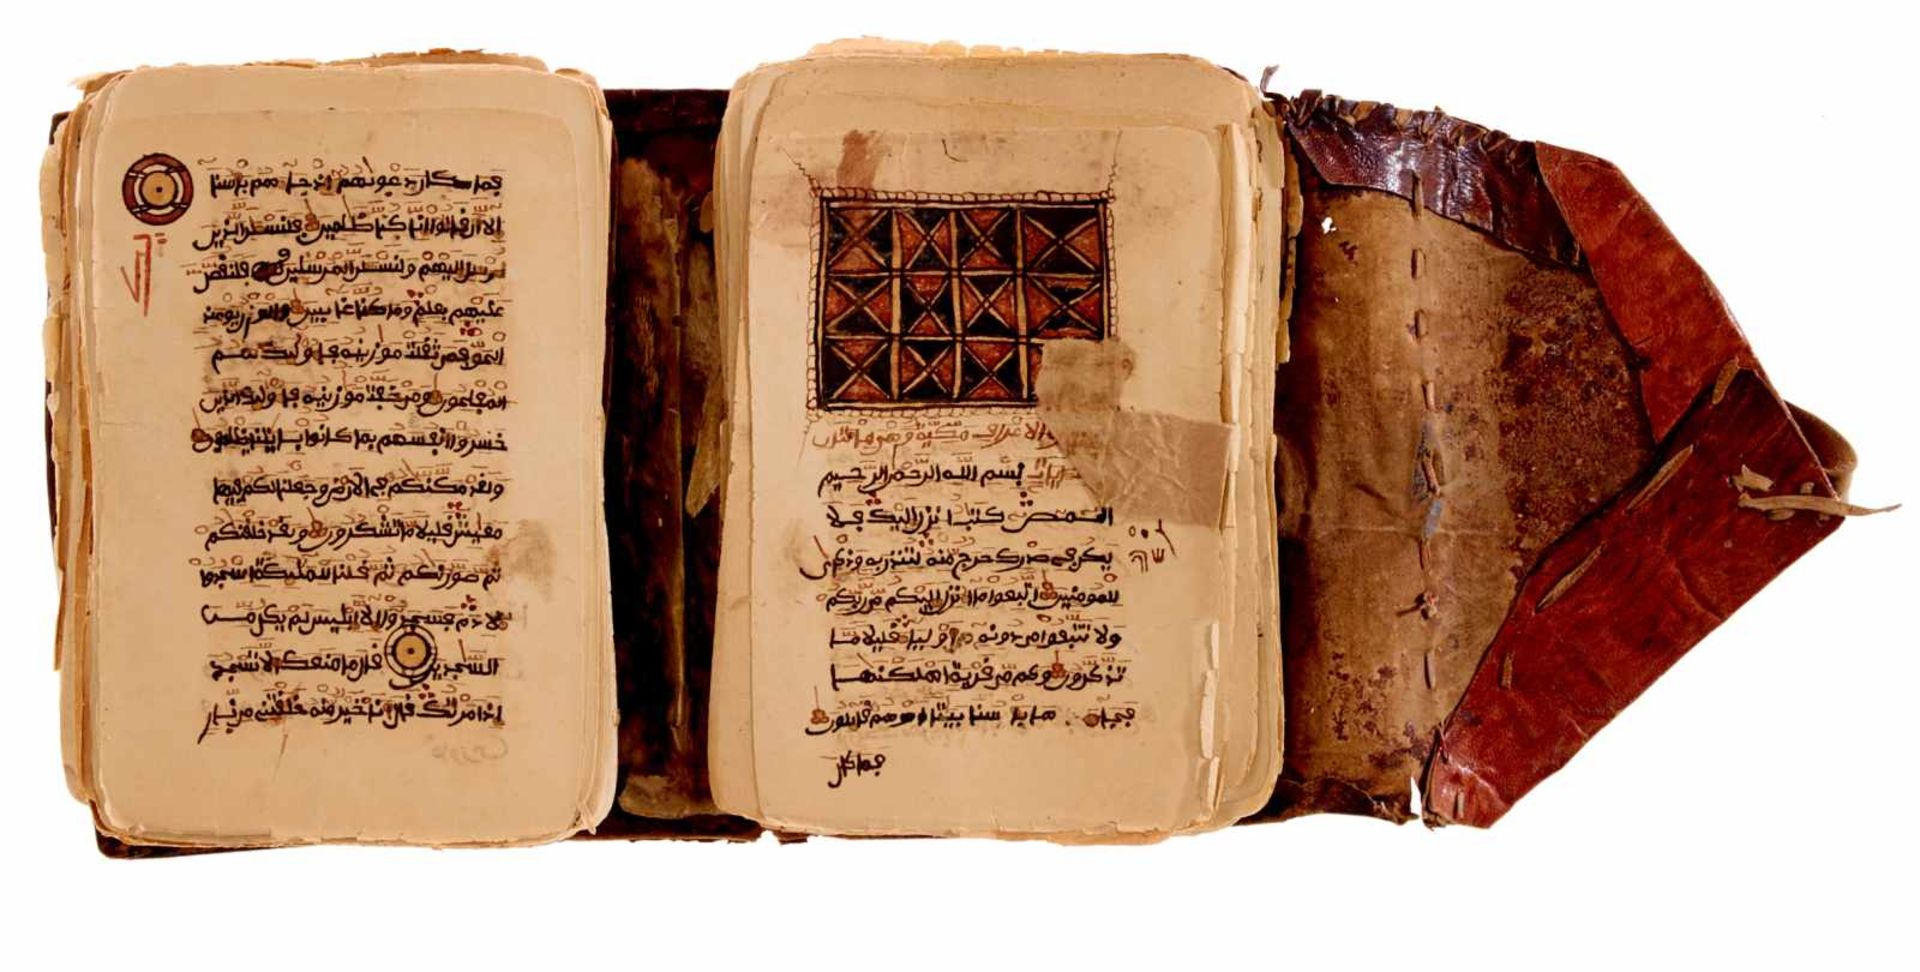 الاعراف مكية وهي مائتان
بسم الله الرحمن الرحيم
المص كتب انزل اليك فلا
يكن في صدرك حرج منه لتنذر به وذكرى
للمومنين اتبعوا ما انزل اليكم من ربكم
ولا تتبعوا من دونه اوليا قليلا ما
تذكرون وكم من قرية اهلكنها
فجاها باسنا بيتا او هم قايلون
فما كان
فما كان دعويهم اذ جاهم باسنا
الا ان قالوا انا كنا ظلمين فلنسلن الذين
ارسل اليهم ولنسلن المرسلين فلنقصن
عليهم بعلم وما كنا غايبين والوزن يوميذ
الحق فمن ثقلت موزينه فاوليك هم
المفلحون ومن خفت موزينه فاوليك الذين
خسروا انفسهم بما كانوا بايتنا يظلمون
ولقد مكنكم في الارض وجعلنا لكم فيها
معيش قليلا ما تشكرون ولقد خلقنكم
ثم صورنكم ثم قلنا للمليكة اسجدوا
لادم فسجدوا الا ابليس لم يكن من
السجدين قال ما منعك الا تسجد
اذ امرتك قال انا خير منه خلقتني من نار